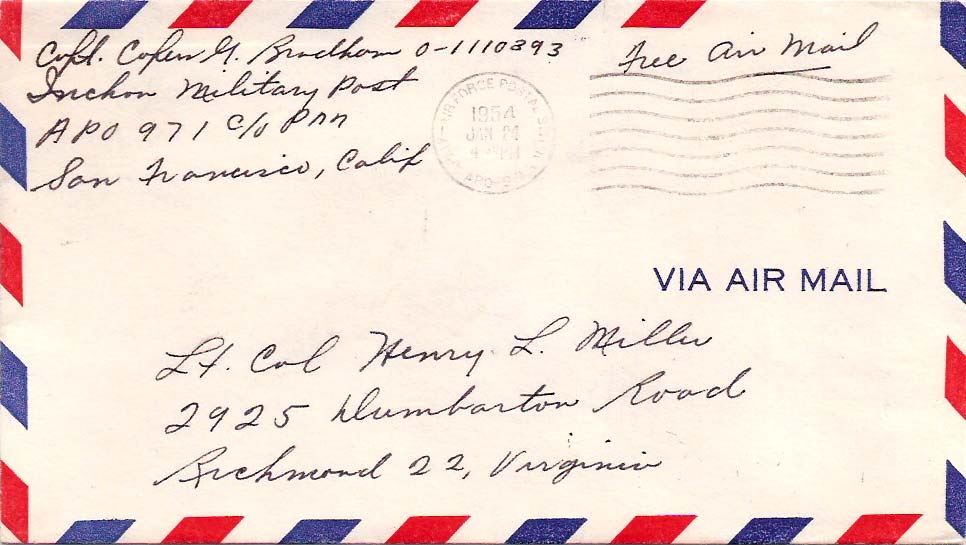 Capt. G. Bradham O-1110393
Inchon Military Post
APO 971 c/o PM
San Francisco, Calif
Free Air Mail
AIR FORCE POSTAL
1954
JAN 24
APO
VIA AIR MAIL
Lt. Col Henry L. Miller
2925 Dumbarton Road
Richmond 22, Virginia